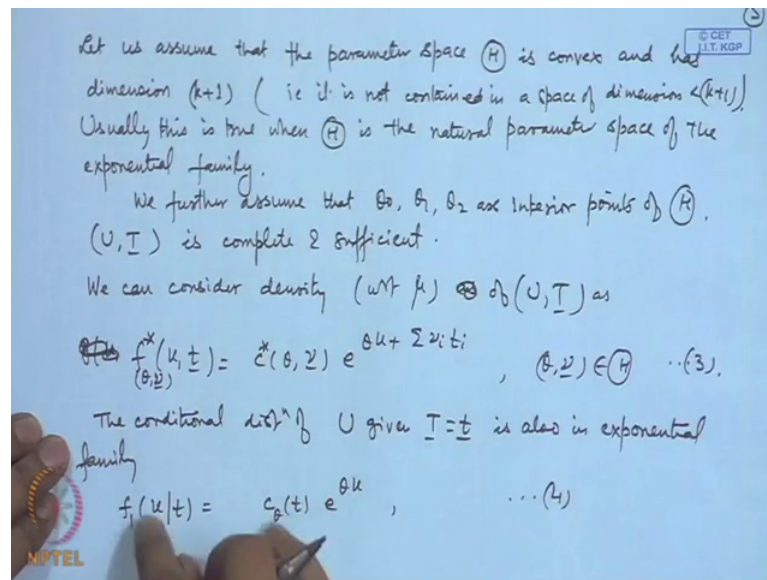 © CET
I.I.T. KGP
Let us assume that the parameter space Ⓗ is convex and has
dimension (k+1) ( ie it is not contained in a space of dimension <(k+1)).
Usually this is true when Ⓗ is the natural parameter space of the
exponential family.
We further assume that θ0, θ1, θ2 are interior points of Ⓗ.
(U, T) is complete & sufficient.
We can consider density (wrt μ) of (U, T) as
f*(θ,ν)(u, t) = c*(θ, ν) e^{θu + Σνiti} , (θ,ν) ∈ Ⓗ ..(3).
The conditional distⁿ of U given T = t is also in exponential
family
f1(u|t) = cθ(t) e^{θu} , ...(4)
NPTEL